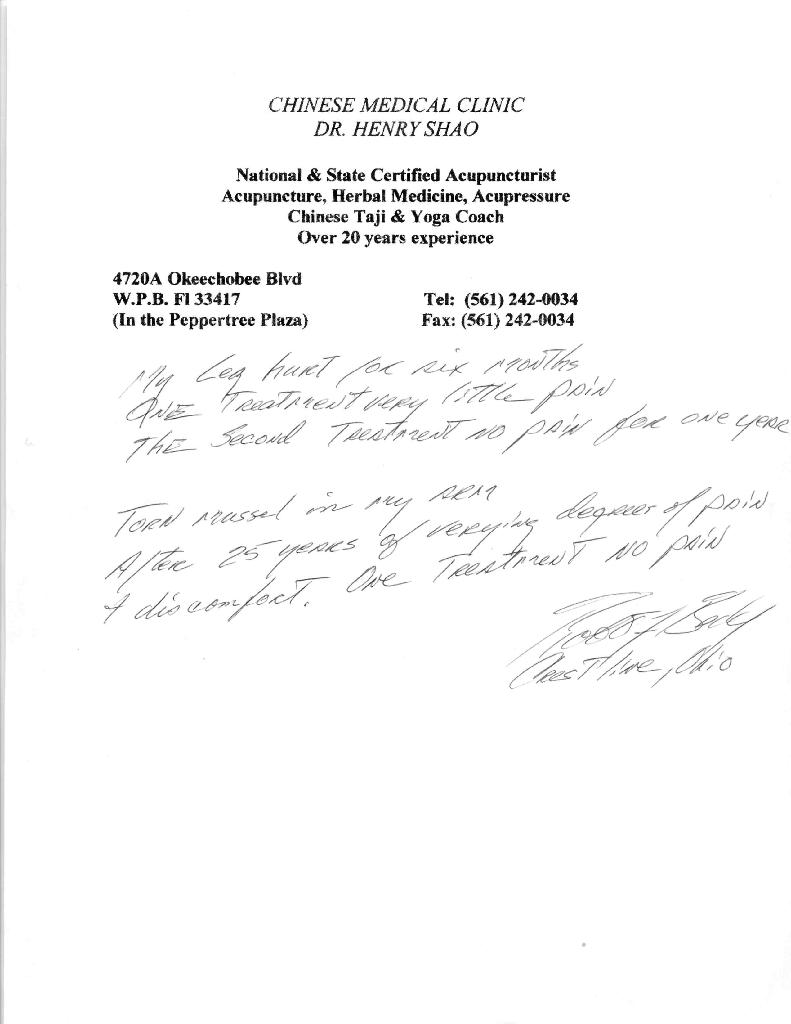 CHINESE MEDICAL CLINIC
DR. HENRY SHAO
National & State Certified Acupuncturist
Acupuncture, Herbal Medicine, Acupressure
Chinese Taji & Yoga Coach
Over 20 years experience
4720A Okeechobee Blvd
W.P.B. Fl 33417 Tel: (561) 242-0034
(In the Peppertree Plaza) Fax: (561) 242-0034
My Leg hurt for six months
ONE Treatment very little pain
THE Second Treatment no pain for one year
Torn mussel in my ARM
After 25 years of verying degrees of pain
& discomfort. One Treatment no pain
Crestline, Ohio